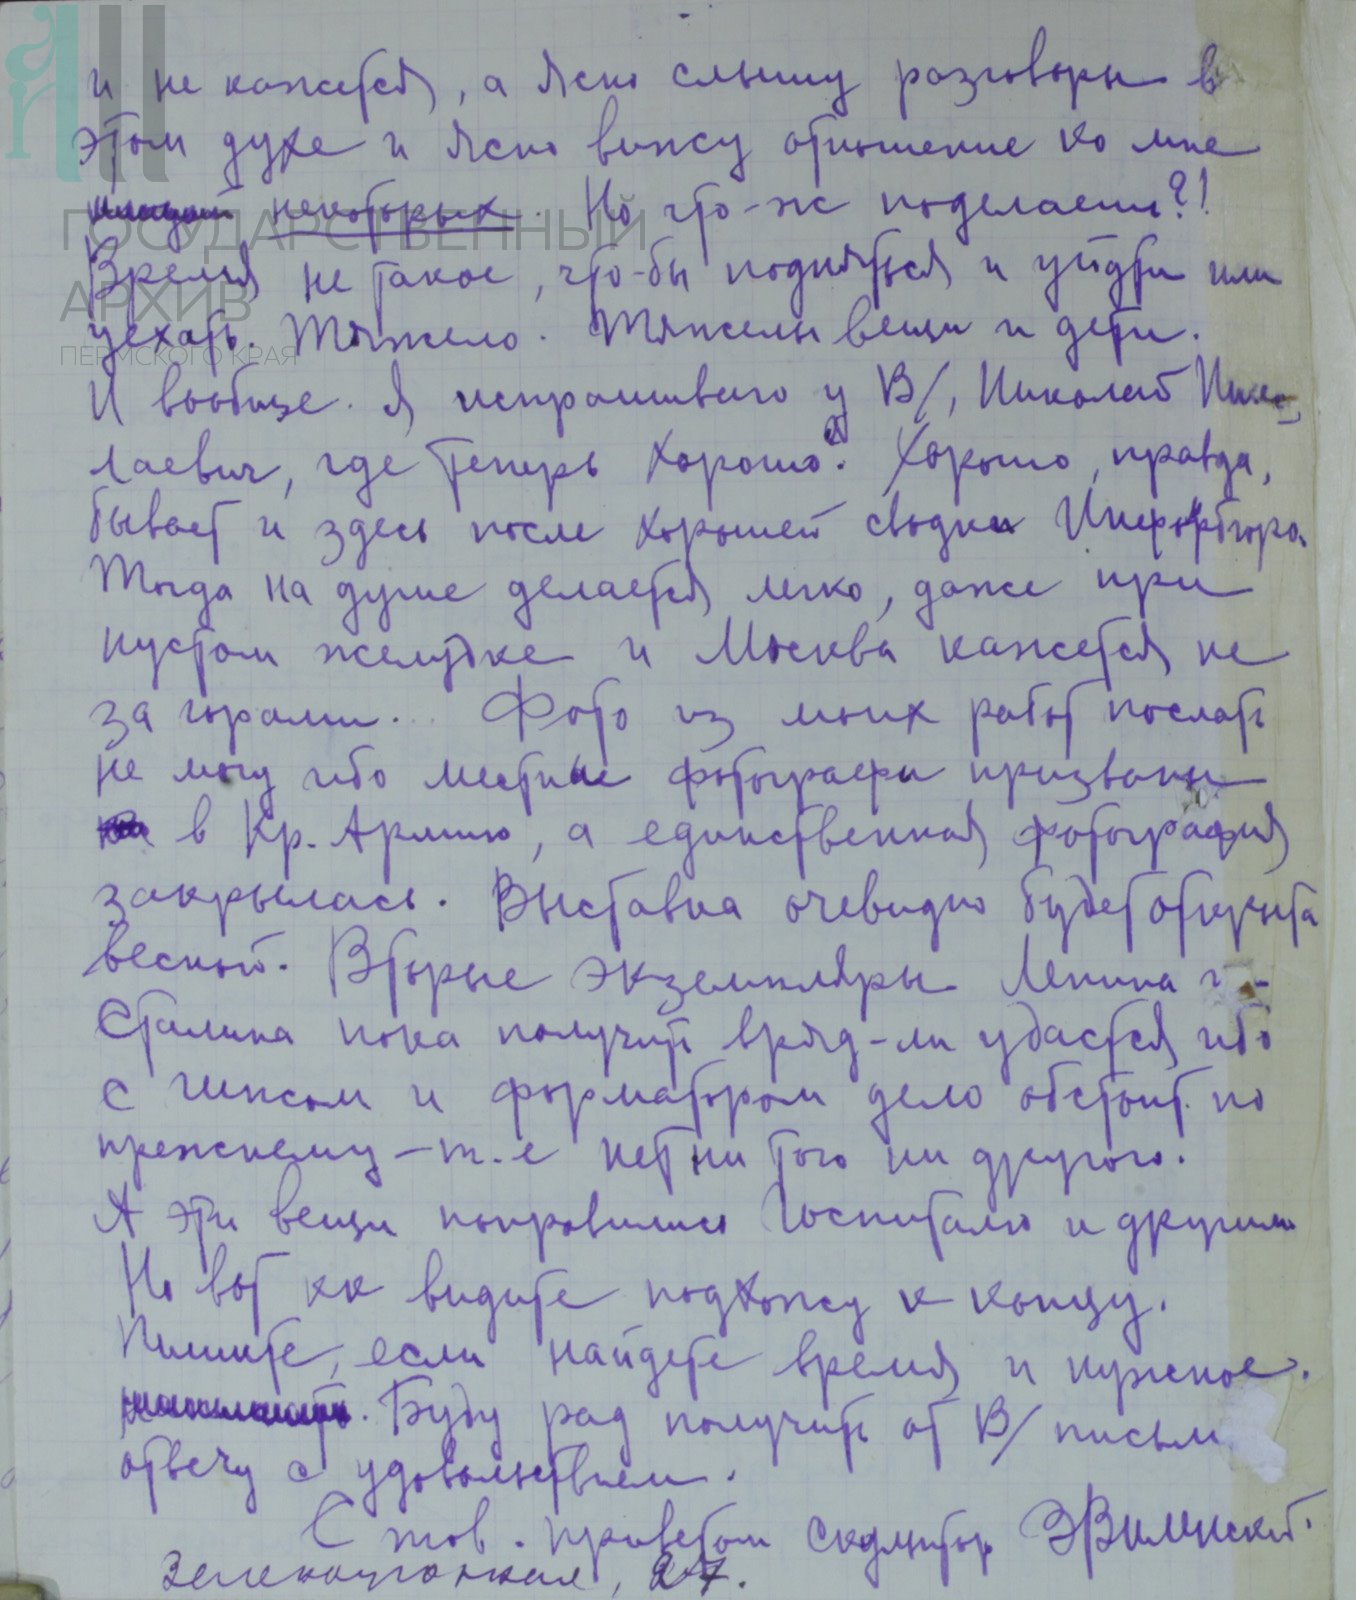 и не кажется, а ясно слышу разговоры в
этом духе и ясно вижу отношение ко мне
некоторых. Но что-ж поделаешь?!
Время не такое, что-бы подняться и уйдти или
уехать. Тяжело. Тяжелы вещи и дети.
И вообще. Я испрашиваю у В/, Николай Нико-
лаевич, где теперь хорошо? Хорошо, правда,
бывает и здесь после хорошей сводки Информбюро.
Тогда на душе делается легко, даже при
пустом желудке и Москва кажется не
за горами... Фото из моих работ послать
не могу ибо местные фотографы призваны
в Кр. Армию, а единственная фотография
закрылась. Выставка очевидно будет открыта
весной. Вторые экземпляры Ленина и
Сталина пока получить вряд-ли удастся ибо
с гипсом и форматором дело обстоит по
прежнему - т.е нет ни того ни другого.
А эти вещи понравились Госпиталю и другим
Но вот кк видите подхожу к концу.
Пишите, если найдете время и нужное.
Буду рад получить от В/ письм
отвечу с удовольствием.
С тов. приветом скульптор ЭВилинский.
27.
ГОСУДАРСТВЕННЫЙ
АРХИВ
ПЕРМСКОГО КРАЯ